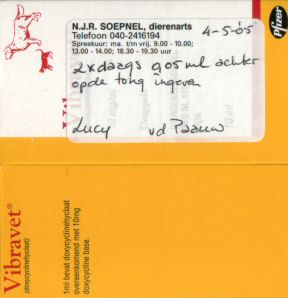 N.J.R. SOEPNEL, dierenarts
Telefoon 040-2416194
Spreekuur: ma. t/m vrij. 9.00 - 10.00;
13.00 - 14.00; 18.30 - 19.30 uur
4-5-05
Pfizer
2xdaags 0,05 ml achter
op de tong ingeven
Lucy vd Paauw
Vibravet®
(doxycyclinehyclaat)
1ml bevat doxycyclinehyclaat
overeenkomend met 10mg
doxycycline base.